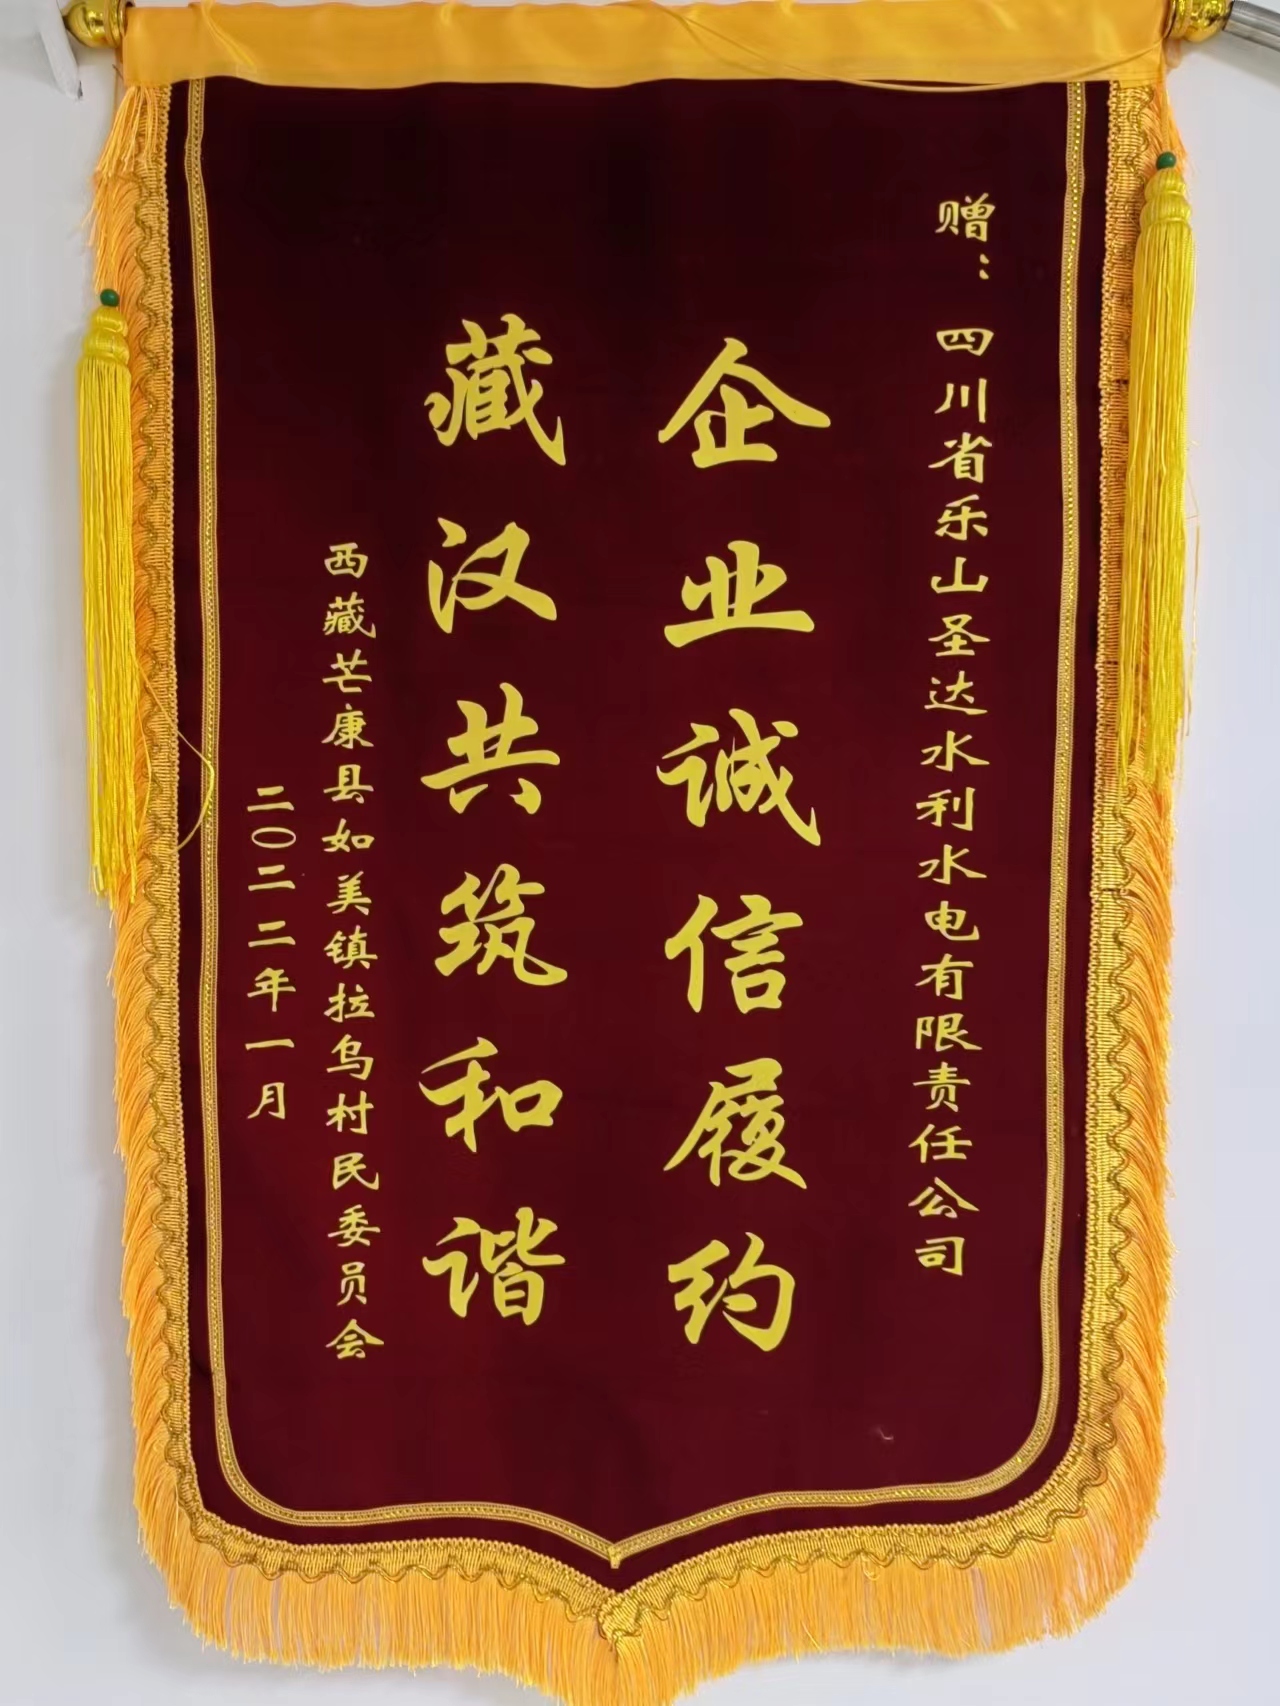 赠：四川省乐山圣达水利水电有限责任公司
企业诚信履约
藏汉共筑和谐
西藏芒康县如美镇拉乌村民委员会
二〇二二年一月